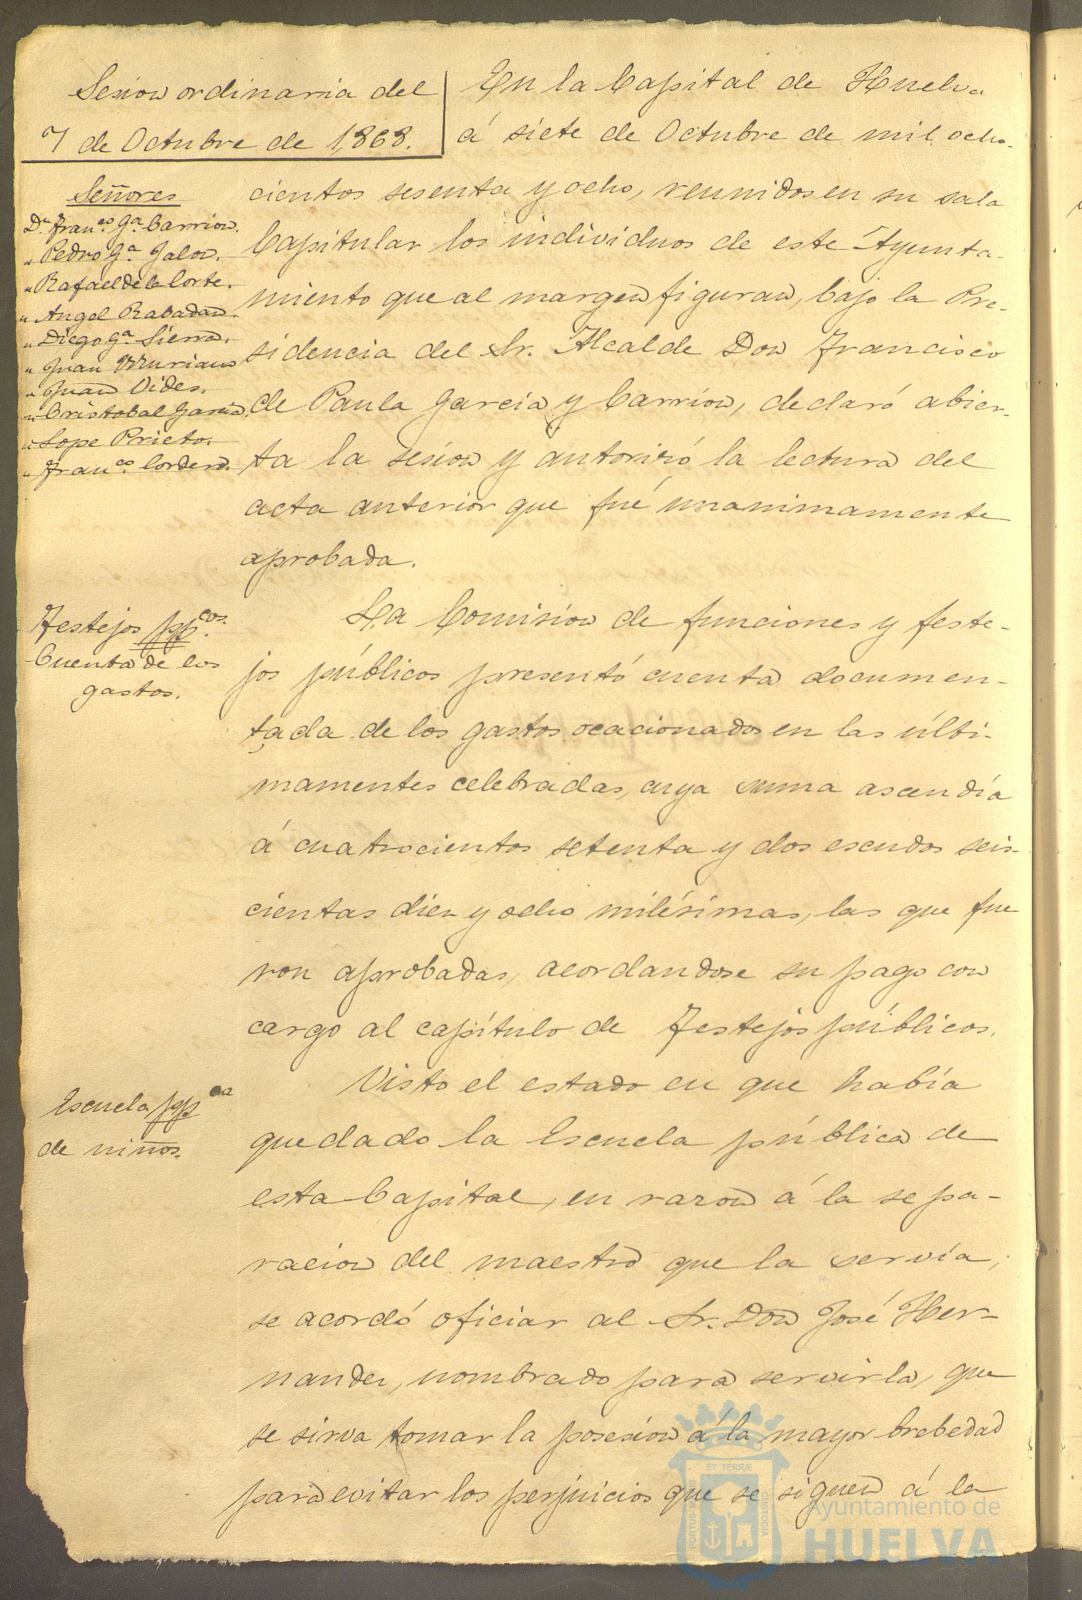 Sesion ordinaria del
7 de Octubre de 1,868.
Señores
Dn. Franco. Ga. Carrion.
" Pedro Ga. Jalon.
" Rafael de la Corte.
" Angel Rabadan.
" Diego Ga. Sierra.
" Juan Muriano
" Juan Vides.
" Cristobal Garcia.
" Lope Prieto.
" Franco. Cordero.
En la Capital de Huelva
á siete de Octubre de mil ocho-
cientos sesenta y ocho, reunidos en su sala
Capitular los individuos de este Ayunta-
miento que al margen figuran, bajo la Pre-
sidencia del Sr. Alcalde Don Francisco
de Paula Garcia y Carrion, declaró abier-
ta la sesion y autorizó la lectura del
acta anterior que fué unanimamente
aprobada.
Festejos ppcos.
Cuenta de los
gastos.
La Comision de funciones y feste-
jos públicos presentó cuenta documen-
tada de los gastos ocacionados en las últi-
mamentes celebradas, cuya suma ascendía
á cuatrocientos setenta y dos escudos seis-
cientas diez y ocho milésimas, las que fue
ron aprobadas, acordandose su pago con
cargo al capítulo de Festejos públicos.
Escuela ppca
de niños.
Visto el estado en que había
quedado la Escuela pública de
esta Capital, en razon á la sepa-
racion del maestro que la servía,
se acordó oficiar al Sr. Don José Her-
nandez, nombrado para servirla, que
se sirva tomar la posesion á la mayor brebedad
para evitar los perjuicios que se siguen á la
Ayuntamiento de
HUELVA